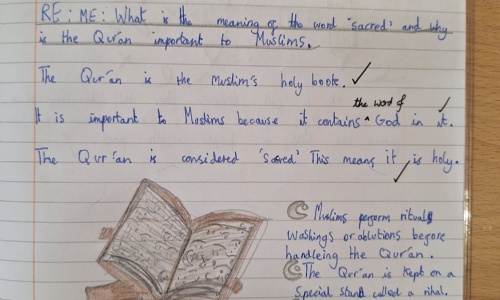 RE: ME: What is the meaning of the word 'sacred' and why
is the Qur'an important to Muslims.
The Qur'an is the Muslim's holy book.
the word of
It is important to Muslims because it contains ^ God in it.
The Qur'an is considered 'Sacred' This means it is holy.
Muslims perform rituals
washings or ablutions before
handleing the Qur'an.
The Qur'an is kept on a
special stand called a rihal.